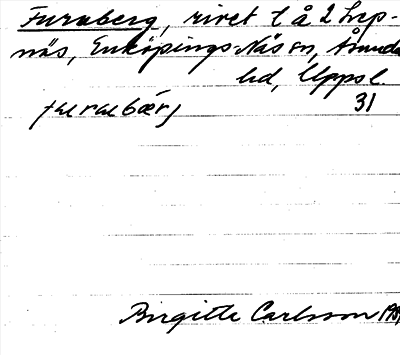 Furuberg, rivet t å 2 Grep-
näs, Enköpings-Näs sn, Åsunda
hd, Uppsl.
fɯrɯbærj 31
Birgitte Carlsson 1981